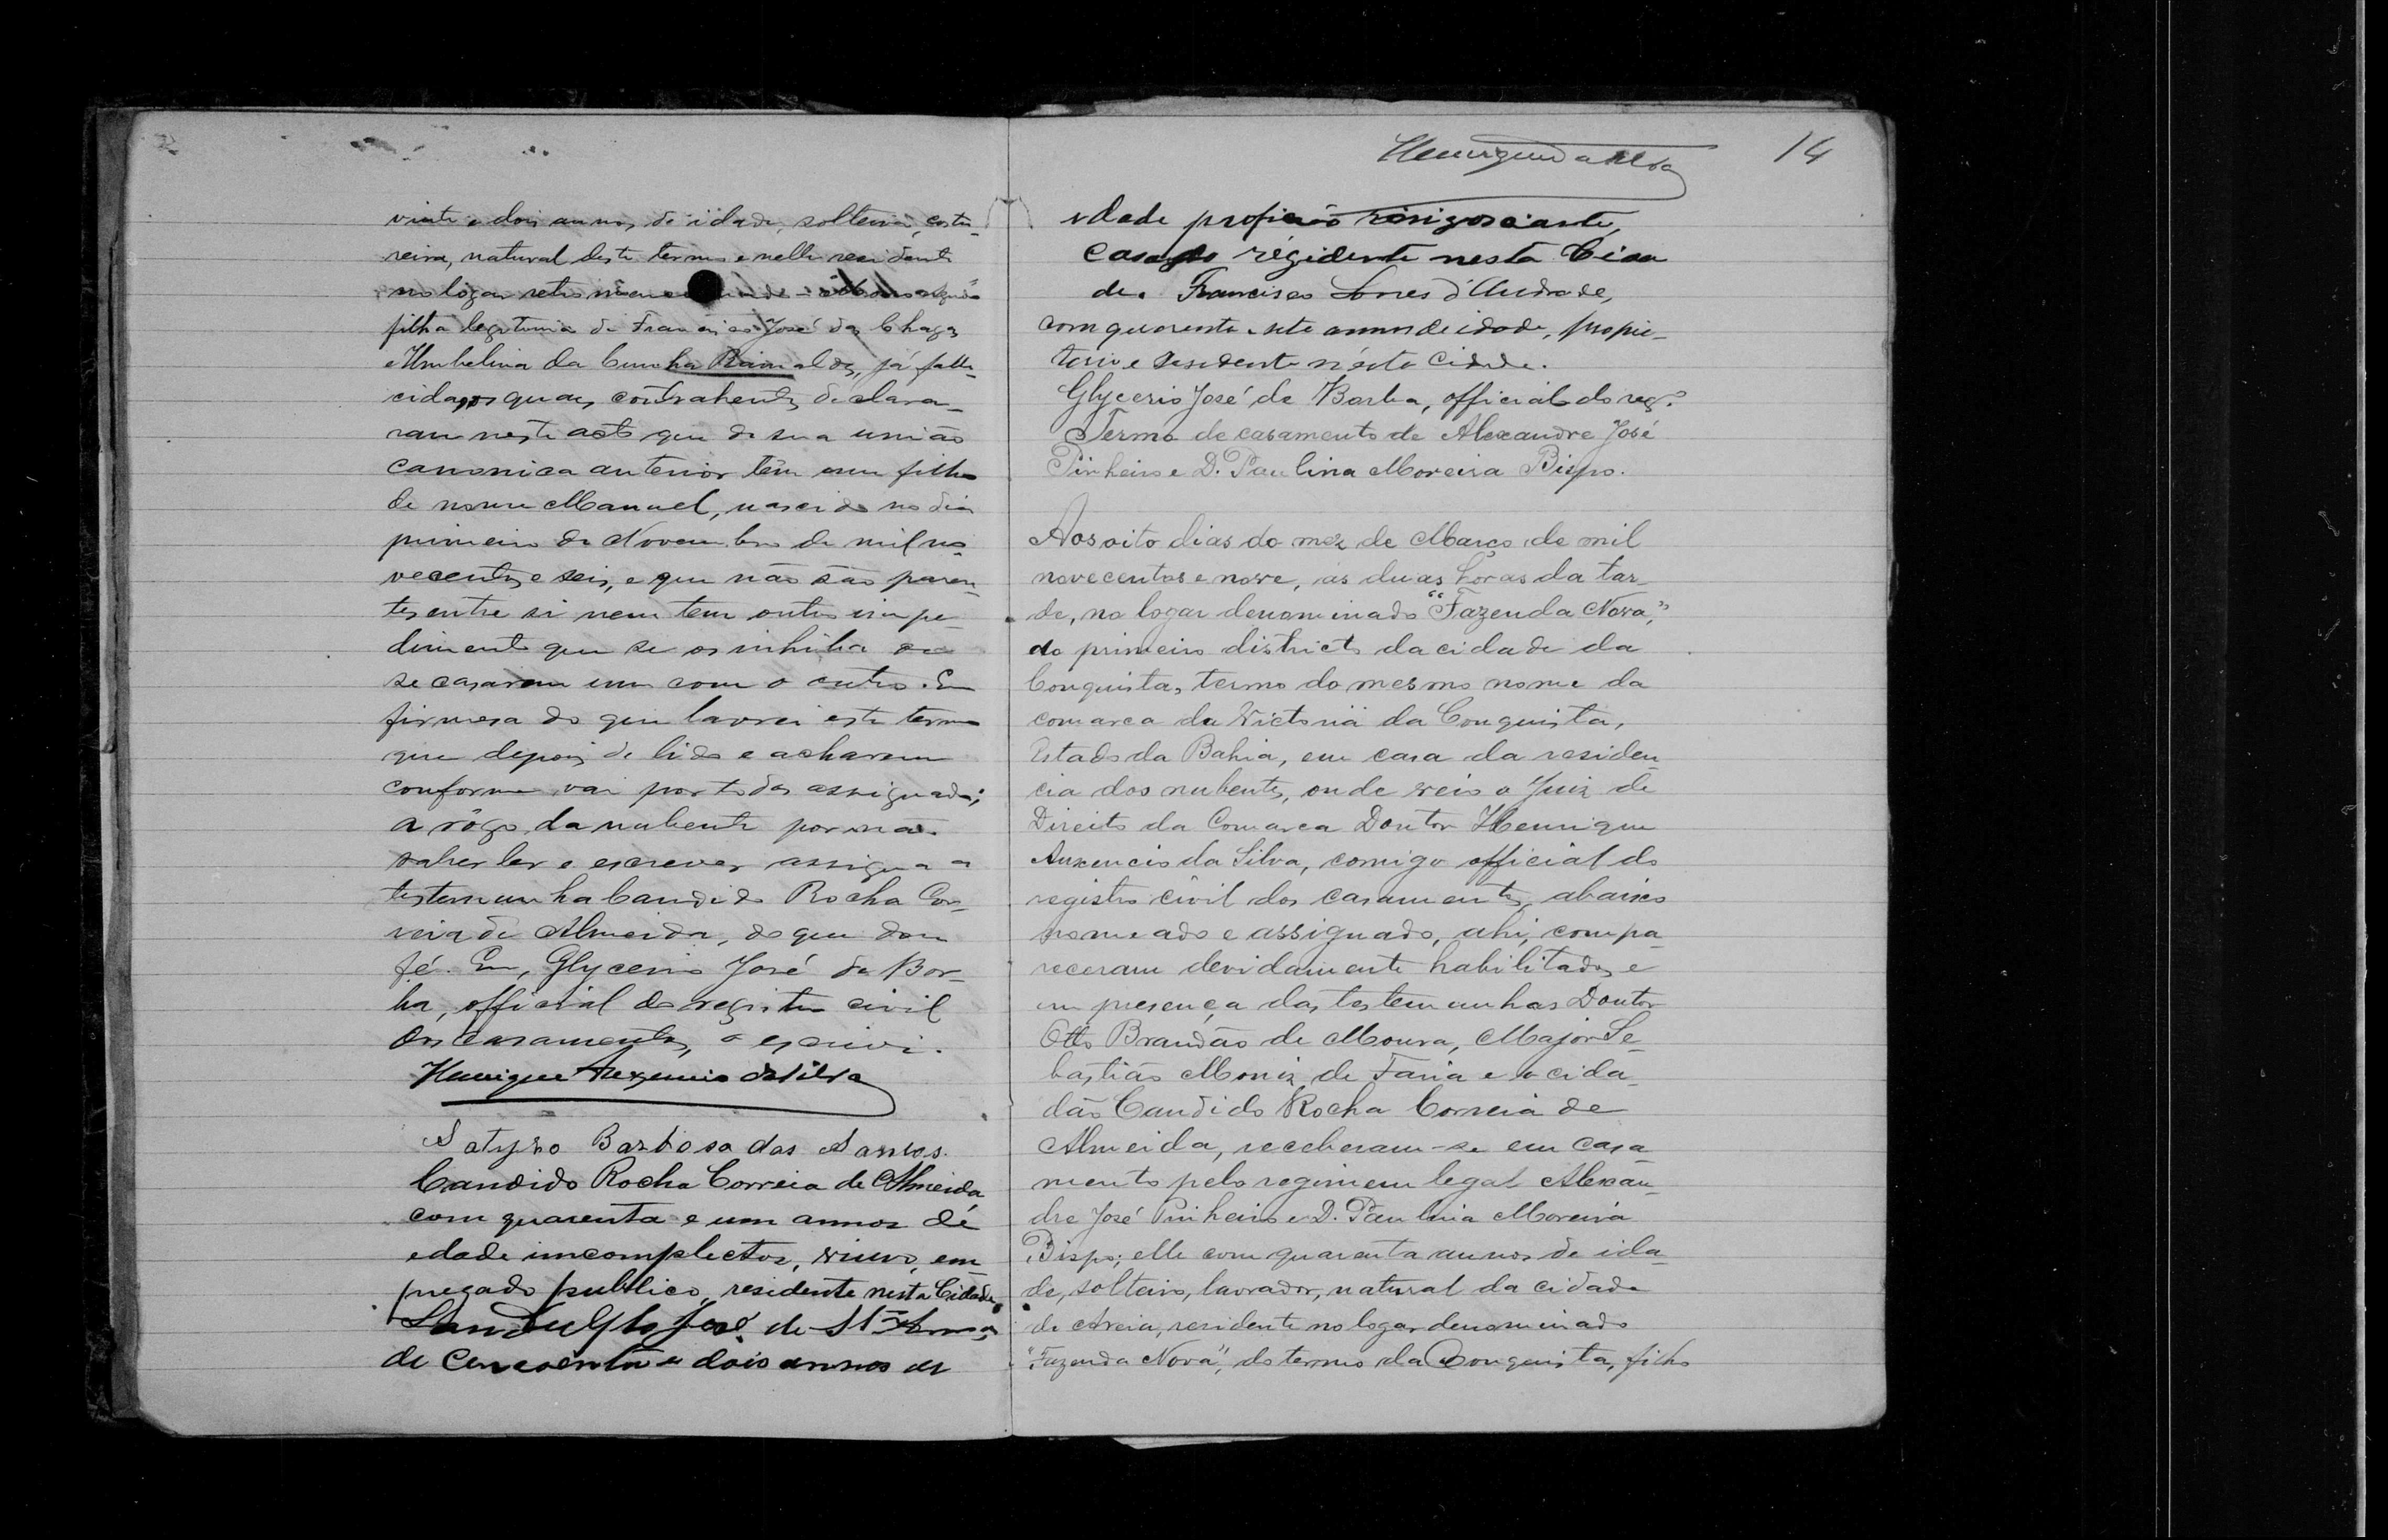 vinte e dois annos de idade, solteira, costu-
reira, natural deste termo e nelle residente
no logar retro
filha legitima de Francisco José das Chagas
e Umbelina da Cunha, já falle-
cida, os quaes contrahentes declara-
ram neste acto que de sua união
canonica anterior têm um filho
de nome Manuel, nascido no dia
primeiro de Novembro de mil no-
vecentos e seis, e que não são paren-
tes entre si nem tem outro impe-
dimento que se os inhiba de
se casarem um com o outro. Em
firmesa do que lavrei este termo
que depois de lido e acharem
conforme vai por todos assignado;
a rôgo da nubente por não
saber ler e escrever assigna a
testemunha Candido Rocha Cor-
reia de Almeida, do que dou
fé. Eu, Glycerio José da Bor-
ba, official do registro civil
dos casamentos, o escrivi.
Henrique Auxencio da Silva
Satyro Barbosa dos Santos.
Candido Rocha Correia de Almeida
com quarenta e um annos de
edade imcomplectos, viuvo, em
pregado publico, residente nesta Cidade
José de
de cencoenta e dois annos de
14
Henrique da Silva
edade profição
Casado régidente nesta Cida
de. Francisco d'Andrade,
com quarenta e sete annos de idade, propie-
tario e residente nésta Cidade.
Glycerio José da Borba, official do reg.º
Termo de casamento de Alexandre José
Pinheiro e D. Paulina Moreira Bispo.
Aos oito dias do mez de Março de mil
novecentos e nove, ás duas horas da tar-
de, no logar denominado "Fazenda Nova",
do primeiro districto da cidade da
Conquista, termo do mesmo nome da
comarca da Victoria da Conquista,
Estado da Bahia, em casa da residen-
cia dos nubentes, onde veio o Juiz de
Direito da Comarca Doutor Henrique
Auxencio da Silva, comigo official do
registro civil dos casamentos, abaixo
nomeado e assignado, ahi, compa-
receram devidamente habilitados e
em presença das testemunhas Doutor
Otto Brandão de Moura, Major Se-
bastião Moniz de Faria e o cida-
dão Candido Rocha Correia de
Almeida, receberam-se em casa-
mento pelo regimem legal Alexan-
dre José Pinheiro e D. Paulina Moreira
Bispo; elle com quarenta annos de ida-
de, solteiro, lavrador, natural da cidade
de Areia, residente no logar denominado
"Fazenda Nova", do termo da Conquista, filho